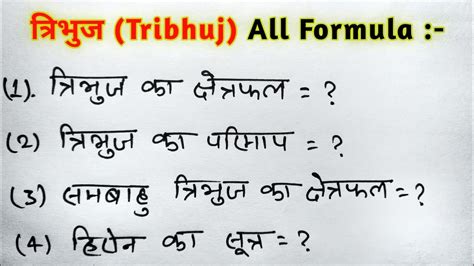 त्रिभुज (Tribhuj) All Formula :-
(1). त्रिभुज का क्षेत्रफल = ?
(2) त्रिभुज का परिमाप = ?
(3) समबाहु त्रिभुज का क्षेत्रफल = ?
(4) हिरोन का सूत्र = ?